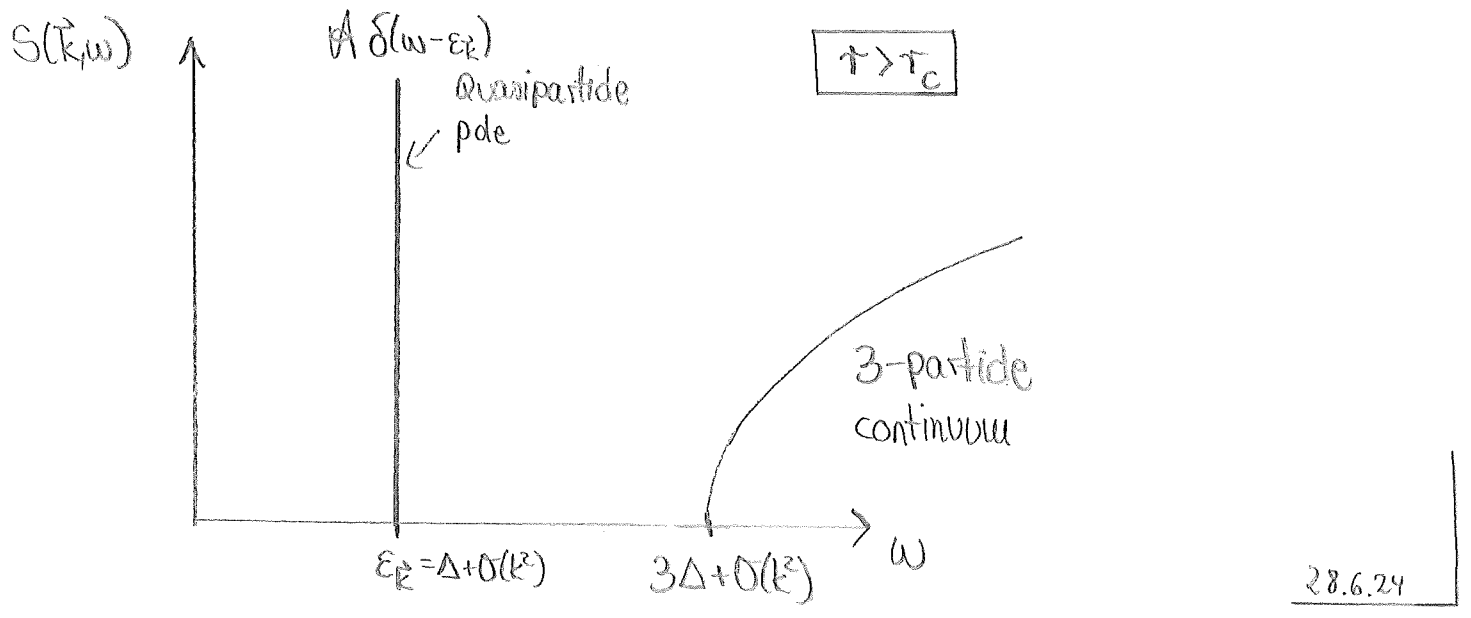 S(k⃗,ω)
A δ(ω-ε_k⃗)
Quasiparticle
pole
r > r_c
3-particle
continuum
ω
ε_k⃗ = Δ+O(k²)
3Δ+O(k²)
28.6.24